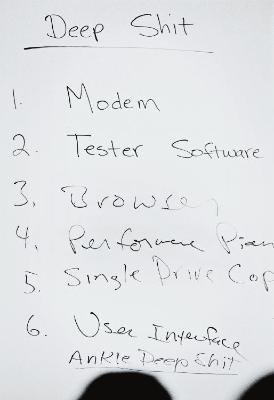 Deep Shit
1. Modem
2. Tester Software
3. Browser
4.
5. Single Drive Cop
6. User Interface
Ankle Deep Shit